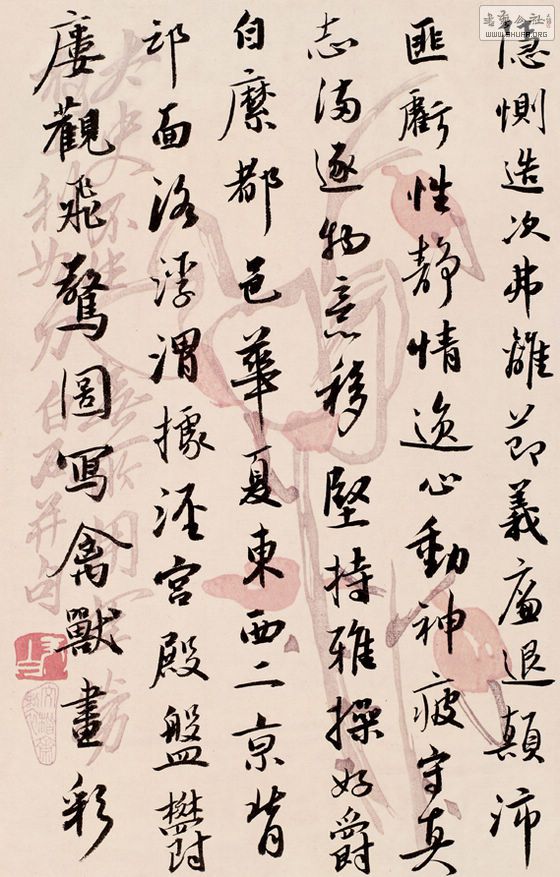 隱惻造次弗離節義廉退顛沛
匪虧性靜情逸心動神疲守真
志滿逐物意移堅持雅操好爵
自縻都邑華夏東西二京背
邙面洛浮渭據涇宮殿盤鬱
樓觀飛驚圖寫禽獸畫彩
WWW.SHUFA.ORG